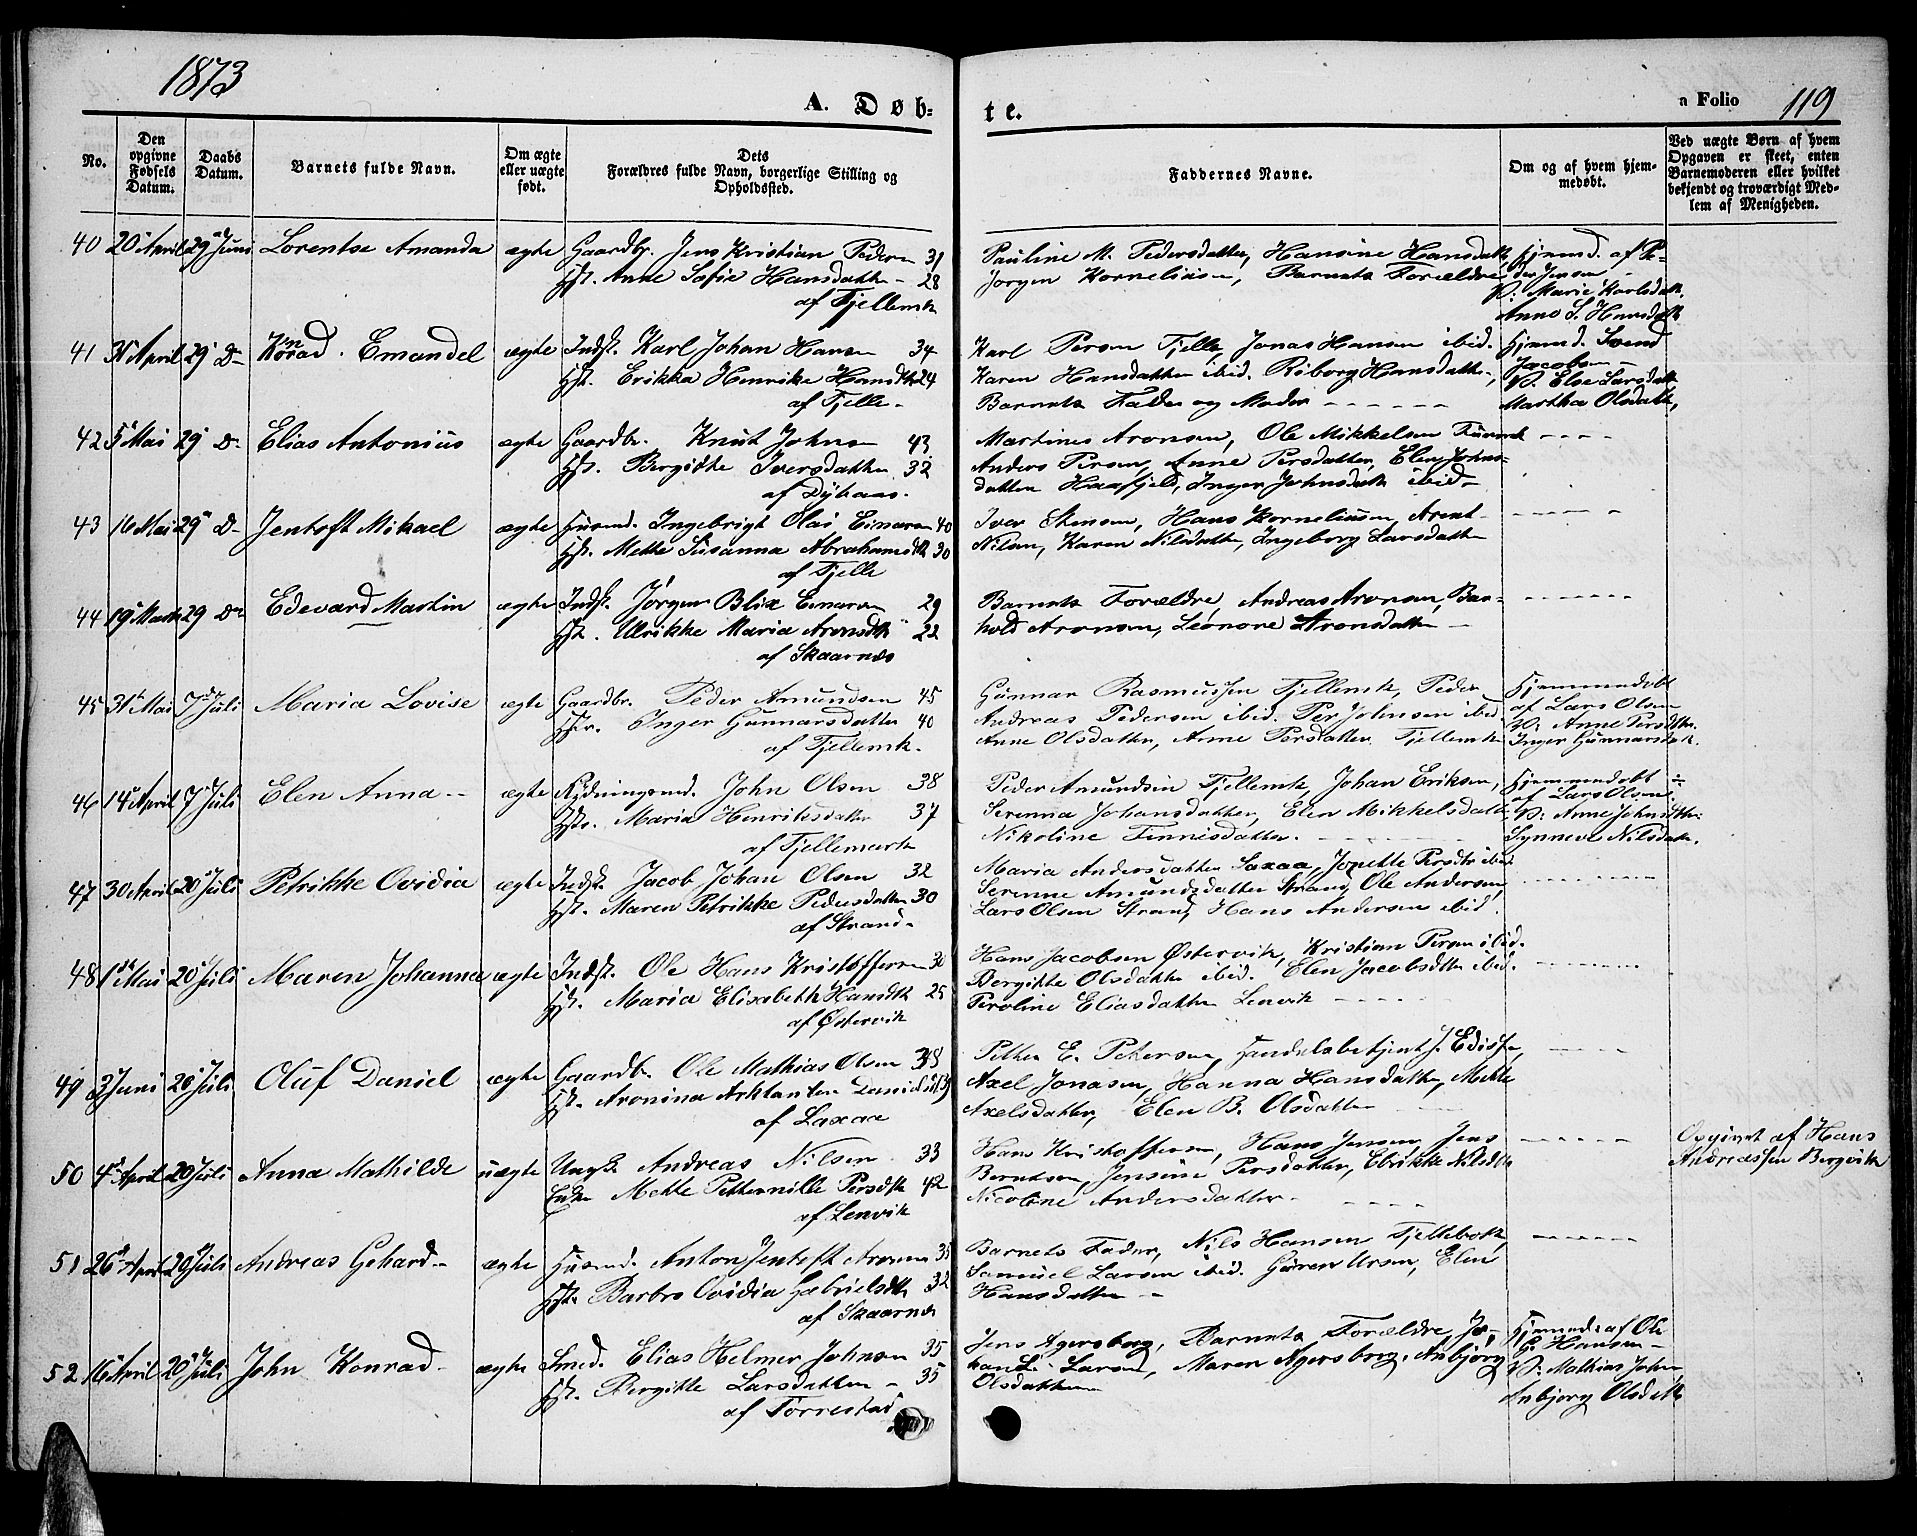 1873
A. Døb-
te.
a Folio 119
No.
Den opgivne Fødsels Datum.
Daabs Datum.
Barnets fulde Navn.
Om ægte eller uægte født.
Dets Forældres fulde Navn, borgerlige Stilling og Opholdssted.
Faddernes Navne.
Om og af hvem hjemmedøbt.
Ved uægte Børn af hvem Opgaven er skeet, enten Barnemoderen eller hvilket bekjendt og troværdigt Medlem af Menigheden.
40 20 April 29 Juni Lorentse Amanda ægte Gaardbr. Jens Kristian Peders 31
Hst. Anne Sofie Hansdatter - 28
af Fjellemk
Pauline M. Pedersdatter, Hansine Hansdatt,
Jørgen Korneliusen, Barnets Forældre
Hjemd. af Pe-
der Jensen -
V: Marie Karlsdatt,
Anne S. Hansdatt
41 April 29 D- Konrad. Emandel ægte Indst. Karl Johan Hansen 34
Hst. Erikka Henrike Hansdtr 24
af Fjelle -
Karl Persen Fjelle, Jonas Hansen ibid.
Karen Hansdatter ibid. Riborg Hansdatter,
Barnets Fader og Moder - - - - -
Hjemd. Svend
Jacobsen -
V. Else Larsdatt
Martha Olsdatt,
42 5 Mai 29 D- Elias Antonius ægte Gaardbr. Knut Johns 43
Hst. Bergitte Iversdatter 32
af Dybaas.
Martines Aronsen, Ole Mikkelsen
Anders Persen, Anne Persdatter, Elen Johns-
datter Haafjeld, Inger Johnsdatt ibid -
- - - -
43 16 Mai 29 D- Jentoft Mikael ægte Husmd. Ingebrigt Olai Einarsen 40
Hst. Mette Susanna Abrahamsdtr 30
af Fjelle
Iver Stensen, Hans Korneliusen, Arent
Nilsen, Karen Nilsdatter, Ingeborg Larsdatter
- - - - -
44 19 Marts 29 D- Edevard Martin ægte Indst. Jørgen Blix Einarsen 29
Hst. Ulrikke Maria Aronsdtr 22
af Skaarnes
Barnets Forældre, Andreas Aronsen, Ber-
hold Aronsen, Leonore Aronsdatter -
- - - - - -
45 31 Mai 7 Juli Maria Lovise ægte Gaardbr. Peder Amundsen 45
Hstr. Inger Gunnarsdatter 40
af Fjellemk.
Gunnar Rasmussen Fjellemk, Peder
Andreas Pedersen ibid. Per Johnsen ibid.
Anne Olsdatter, Anne Persdatter Fjellemk
Hjemmedøbt
af Lars Olsen
V. Anne Persdtter
Inger Gunnarsdatt.
46 14 April 7 Juli Elen Anna -- ægte Rydningsmd. John Olsen 38
Hst. Maria Henriksdatter 37
af Fjellemark
Peder Amundsen Fjellemk, Johan Eriksen,
Serenna Johansdatter, Elen Mikkelsdatt
Nikoline Finnisdatter. - - - -
Hjemmedøbt
af Lars Olsen
V. Anne Johnsdtter
Synneve Nilsdatt.
47 30 April 20 Juli Petrikke Ovidia ægte Indst. Jacob Johan Olsen 32
Hst. Maren Petrikke Pedersdatter 30
af Strand -
Maria Andersdatter Saxaa, Jonette Persdtr ibid
Serenne Amundsdatter Strand, Ole Andersen,
Lars Olsen Strand, Hans Andersen ibid.
- - - - - -
48 1 Mai 20 Juli Maren Johanna ægte Indst. Ole Hans Kristoffersen 30
Hst. Maria Elisabeth Hansdtr 25
af Østervik
Hans Jacobsen Østervik, Kristian Persen ibid.
Bergitte Olsdatter ibid. Elen Jacobsdtter ibid.
Peroline Eliasdatter Lenvik - - - -
- - - - - -
49 3 Juni 20 Juli Oluf Daniel ægte Gaardbr. Ole Mathias Olsen 38
Hst. Aronina Danielsd
af Laxaa
Petter E. Petersen, Handelsbetjent J.
Axel Jonasen, Hanna Hansdatter, Mette
Axelsdatter, Elen B. Olsdatter - - -
- - - - -
50 4 April 20 Juli Anna Mathilde uægte Ungk. Andreas Nilsen 33
Enke Mette Petternille Persdtr 42
af Lenvik
Hans Kristoffersen, Hans Jensen, Jens
Berntsen, Jensine Persdatter, Nilsdtr
Nicoline Andersdatter - - - - -
- - - - - -
Opgivet af Hans
Andreassen Bergvik
51 26 April 20 Juli Andreas Gehard -- ægte Husmd. Anton Jentoft Aronsen 35
Hst. Barbro Ovidia Gabrielsdtr 32
af Skaarnes
Barnets Fader, Nils Hansen Fjellebakk,
Samuel Larsen ibid. Gûren Ursen, Elen
Hansdatter -
- - - - - -
52 16 April 20 Juli John Konrad - ægte Smed. Elias Helmer Johnsen 35
Hst. Bergitte Larsdatter - 35
af Torrestad
Jens Agersborg, Barnets Forældre, Jo-
han L. Larsen, Maren Agersborg, Anbjørg
Olsdatter -
Hjemmd. af Ole
P. Hansen -
V. Mathias Johns
Anbjørg Olsdatt